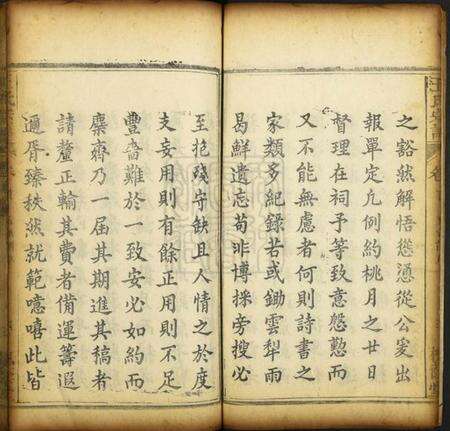 之豁然解悟慫慂從公爰出
報單定凢例約桃月之廿日
督理在祠予等致意慇懃而
又不能無慮者何則詩書之
家類多紀録若或鋤雲犁雨
曷鮮遺忘苟非博採旁搜必
至抱殘守缺且人情之於度
支妄用則有餘正用則不足
豐嗇難於一致安必如約而
麋齊乃一届其期進其稿者
請釐正輸其費者備運籌遐
邇胥臻秩然就範噫嘻此皆